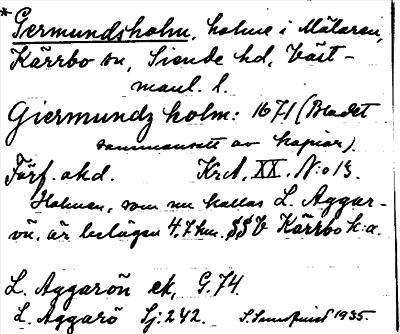 *Germundsholm, holme i Mälaren,
Kärrbo sn, Siende hd, Väst-
manl. l.
Giermundz holm: 1671 (Bladet
sammansatt av kopior).
Förf. okd. KrA, XX. N:o 13.
Holmen, som nu kallas L. Aggar-
ön, är belägen 4,7 km. SSV Kärrbo k:a.
L. Aggarön ek, G.74.
L. Aggarö Sj:242. 1935.